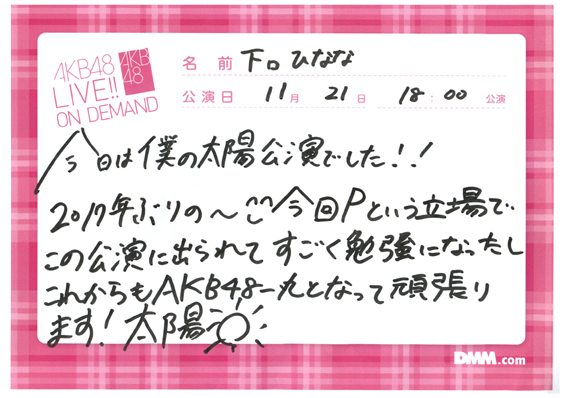 AKB48
LIVE!!
ON DEMAND
AKB
48
名前 下口ひなな
公演日 11月21日 18:00公演
今日は僕の太陽公演でした!!
2017年ぶりの〜今回Pという立場で
この公演に出られてすごく勉強になったし
これからもAKB48一丸となって頑張り
ます!太陽
DMM.com